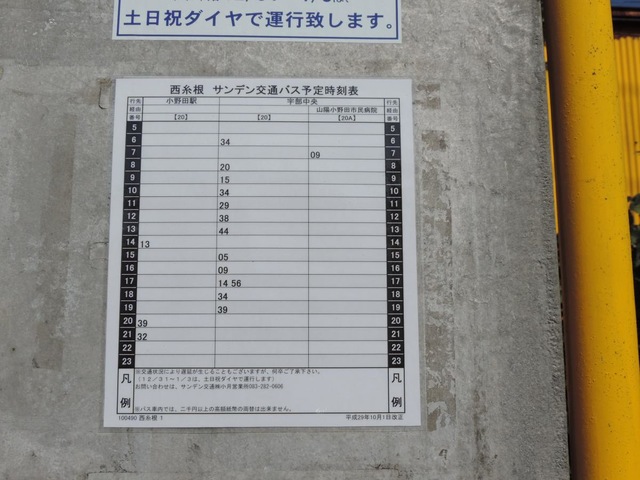 土日祝ダイヤで運行致します。
西糸根 サンデン交通バス予定時刻表
行先 小野田駅 宇部中央 行先
経由 山陽小野田市民病院 経由
番号 【20】 【20】 【20A】 番号
5 5
6 34 6
7 09 7
8 20 8
9 15 9
10 34 10
11 29 11
12 38 12
13 44 13
14 13 14
15 05 15
16 09 16
17 14 56 17
18 34 18
19 39 19
20 39 20
21 32 21
22 22
23 23
凡例 凡例
※交通状況により遅延が生じることもございますが、何卒ご了承下さい。
(12/31~1/3は、土日祝ダイヤで運行します)
お問い合わせは、サンデン交通㈱小月営業所083-282-0606
※バス車内では、二千円以上の高額紙幣の両替は出来ません。
100490 西糸根 1 平成29年10月1日改正